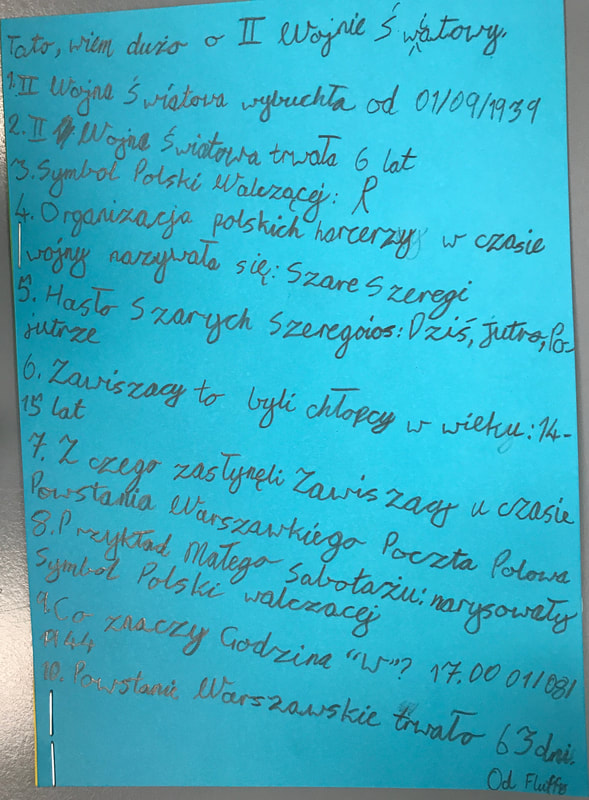 Tato, wiem dużo o II Wojnie Światowy.
1. II Wojna Światowa wybuchła od 01/09/1939
2. II Wojna Światowa trwała 6 lat
3. Symbol Polski Walczącej:
4. Organizacja polskich harcerzy w czasie
wojny nazywała się: Szare Szeregi
5. Hasło Szarych Szeregoios: Dziś, jutro, Po-
jutrze
6. Zawiszacy to byli chłopcy w wieku: 14-
15 lat
7. Z czego zasłynęli Zawiszacy w czasie
Powstania Warszawkiego Poczta Polowa
8. Przykład Małego Sabotażu: narysowały
Symbol Polski walczacej
9. Co znaczy Godzina "W"? 17.00 01/08/
1944
10. Powstanie Warszawskie trwało 63 dni.
Od Fluffo